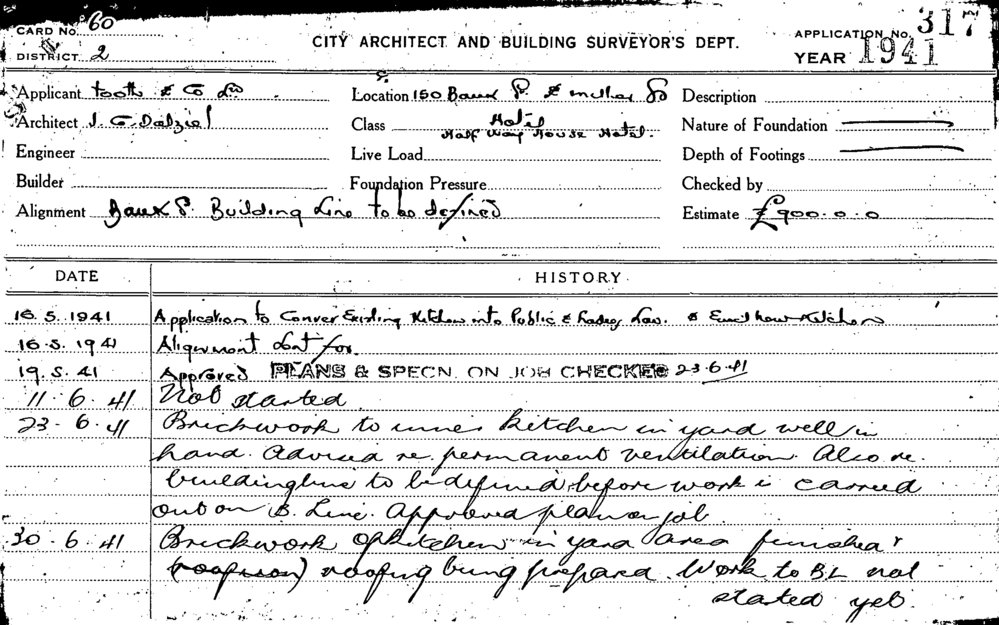 CARD No. 60
DISTRICT 2
CITY ARCHITECT AND BUILDING SURVEYOR'S DEPT.
APPLICATION No. 317
YEAR 1941
Applicant Tooth & Co Ltd
Location 150 Bank St & Miller St
Description
Architect J. G. Dalziel
Class Hotel
Half Way House Hotel.
Nature of Foundation
Engineer
Live Load
Depth of Footings
Builder
Foundation Pressure
Checked by
Alignment Bank St. Building Line to be defined
Estimate £900.0.0
DATE HISTORY
16.5.1941 Application to Conver Existing Kitchen into Public & Lav. & Kitchen
16.5.1941 Alignment sent for.
19.5.41 Approved PLANS & SPECN. ON JOB CHECKED 23.6.41
11.6.41 Not started
23.6.41 Brickwork to kitchen in yard well in
hand. Advised re. permanent ventilation. Also re.
building line to be defined before work is carried
out on B. Line. Approved plan on job
30.6.41 Brickwork of kitchen in yard area finished &
roofing being prepared. Work to BL not
started yet.